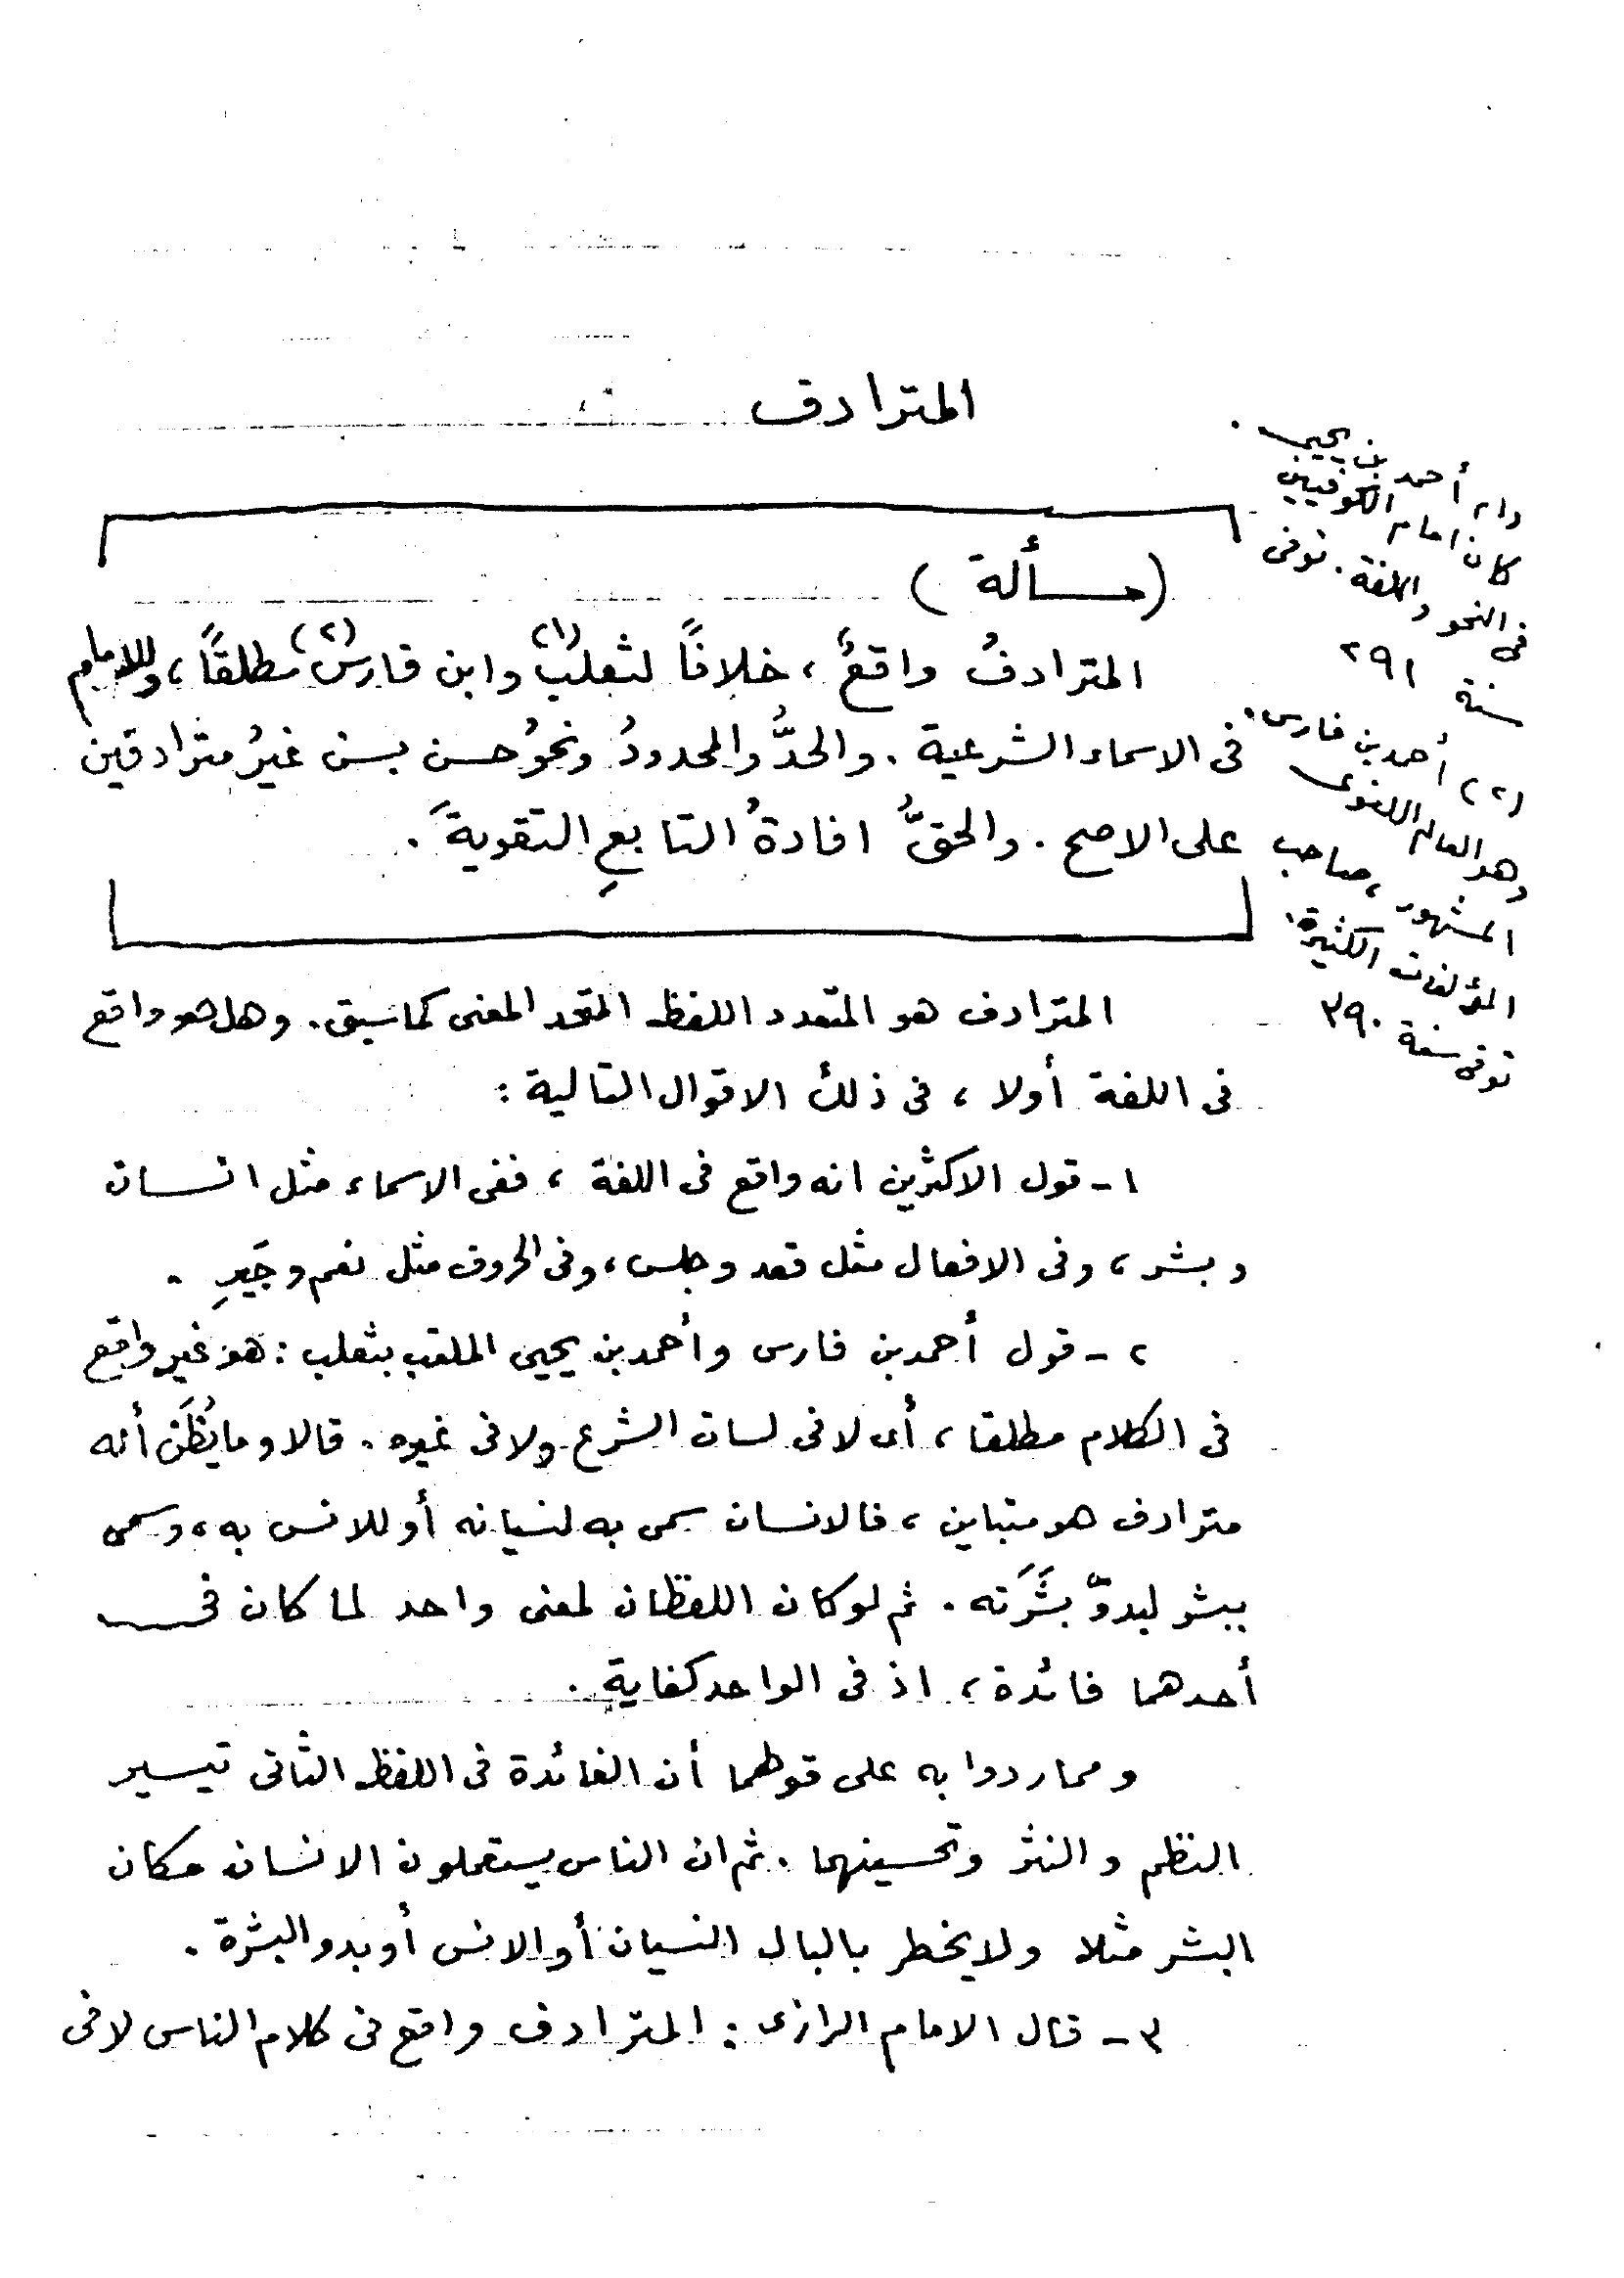 المترادف
(مسألة)
المترادفُ واقعٌ ، خلافًا لثعلب(١) وابن فارس(٢) مطلقًا ، وللامام
فى الاسماء الشرعية . والحدُّ والمحدودُ ونحوُ حسن بسن غيرُ مترادفين
على الاصح . والحقُّ افادةُ التابعِ التقويةَ .
المترادف هو المتعدد اللفظ المتحد المعنى كما سبق . وهل هو واقع
فى اللغة أولا ، فى ذلك الاقوال التالية :
١ - قول الاكثرين انه واقع فى اللغة ، ففى الاسماء مثل انسان
وبشر ، وفى الافعال مثل قعد وجلس ، وفى الحروف مثل نعم وجَيرِ .
٢ - قول أحمد بن فارس وأحمد بن يحيى الملقب بثعلب : هو غير واقع
فى الكلام مطلقا ، أى لا فى لسان الشرع ولا فى غيره . قالا وما يُظَن أنه
مترادف هو متباين ، فالانسان سمى به لنسيانه أو للانس به ، وسمى
ببشر لبدوّ بَشَرَته . ثم لو كان اللفظان لمعنى واحد لما كان فى
أحدهما فائدة ، اذ فى الواحد كفاية .
ومما ردوا به على قولهما أن الفائدة فى اللفظ الثانى تيسير
النظم والنثر وتحسينهما . ثم ان الناس يستعملون الانسان مكان
البشر مثلا ولا يخطر بالبال النسيان أو الانس أو بدو البشرة .
٣ - قال الامام الرازى : المترادف واقع فى كلام الناس لا فى
(١) أحمد بن يحيى .
كان امام الكوفيين
فى النحو واللغة . توفى
سنة ٢٩١
(٢) أحمد بن فارس .
وهو العالم اللغوى
المشهور ، صاحب
المؤلفات الكثيرة .
توفى سنة ٣٩٠